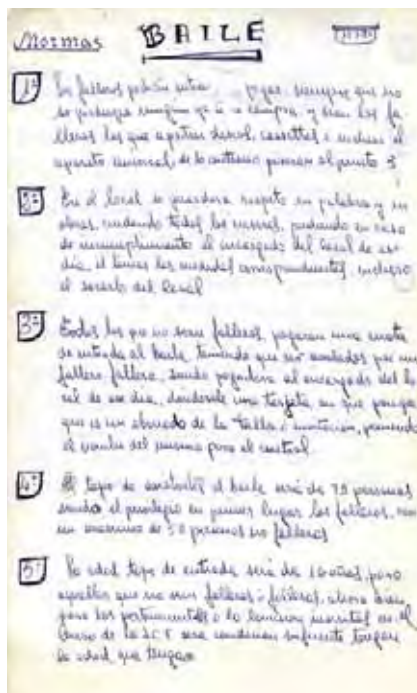 Normas BAILE
1º Los falleros podrán entrar pagar, siempre que no
se produzca ningún y sean los fa-
lleros los que aportan discos, cassettes e incluso el
aparato musical, de lo contrario pasaran al punto 3
2º En el local se guardara respeto en palabra y en
obras, cuidando todos las normas, pudiendo en caso
de incumplimiento el encargado del local de ese
día, el tomar las medidas correspondientes, incluso
el cierre del local
3º Todos los que no sean falleros, pagaran una cuota
de entrada al baile, teniendo que ser avalados por un
fallero fallera, siendo pagadera al encargado del lo
cal de ese día, dandosele una tarjeta, en que ponga
que es un abonado de la falla o invitación, poniendo
el nombre del mismo para el control
4º El tope de asistentes al baile será de 75 personas
siendo el privilegio en primer lugar los falleros, con
un maximo de 50 personas no falleras
5º La edad tope de entrada será de 16 años, para
aquellos que no sean falleros o falleras, ahora bien
para los pertenecientes a la comision inscritos en el
censo de la JCF sera condicion suficiente tengan
la edad que tengan